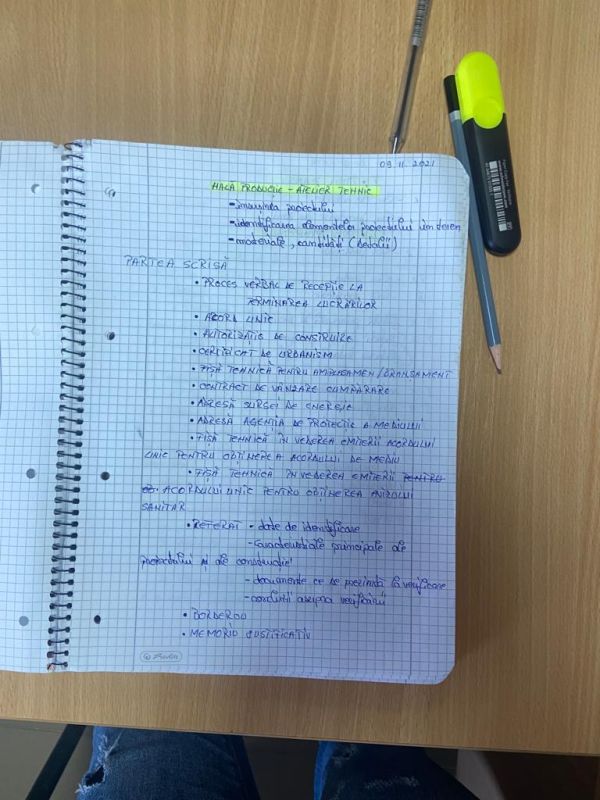 09.11.2021
HALĂ PRODUCȚIE - ATELIER TEHNIC
- însusirea proiectului
- identificarea elementelor proiectului în teren
- materiale, cantități (detalii)
PARTEA SCRISĂ
• PROCES VERBAL DE RECEPȚIE LA
TERMINAREA LUCRĂRILOR
• ACORD UNIC
• AUTORIZAȚIE DE CONSTRUIRE
• CERTIFICAT DE URBANISM
• FIȘĂ TEHNICĂ PENTRU AMPLASAMEN/BRANȘAMENT
• CONTRACT DE VÂNZARE CUMPĂRARE
• ADRESĂ SURSEI DE ENERGIE
• ADRESĂ AGENȚIA DE PROTECȚIE A MEDIULUI
• FIȘĂ TEHNICĂ ÎN VEDEREA EMITERII ACORDULUI
UNIC PENTRU OBȚINEREA ACORDULUI DE MEDIU
• FIȘĂ TEHNICĂ ÎN VEDEREA EMITERII PENTRU
ACORDULUI UNIC PENTRU OBȚINEREA AVIZULUI
SANITAR
• REFERAT - date de identificare
- caracteristicile principale ale
proiectului și ale construcției
- documente ce se prezintă la verificare
- concluzii asupra verificării
• BORDEROU
• MEMORIU JUSTIFICATIV